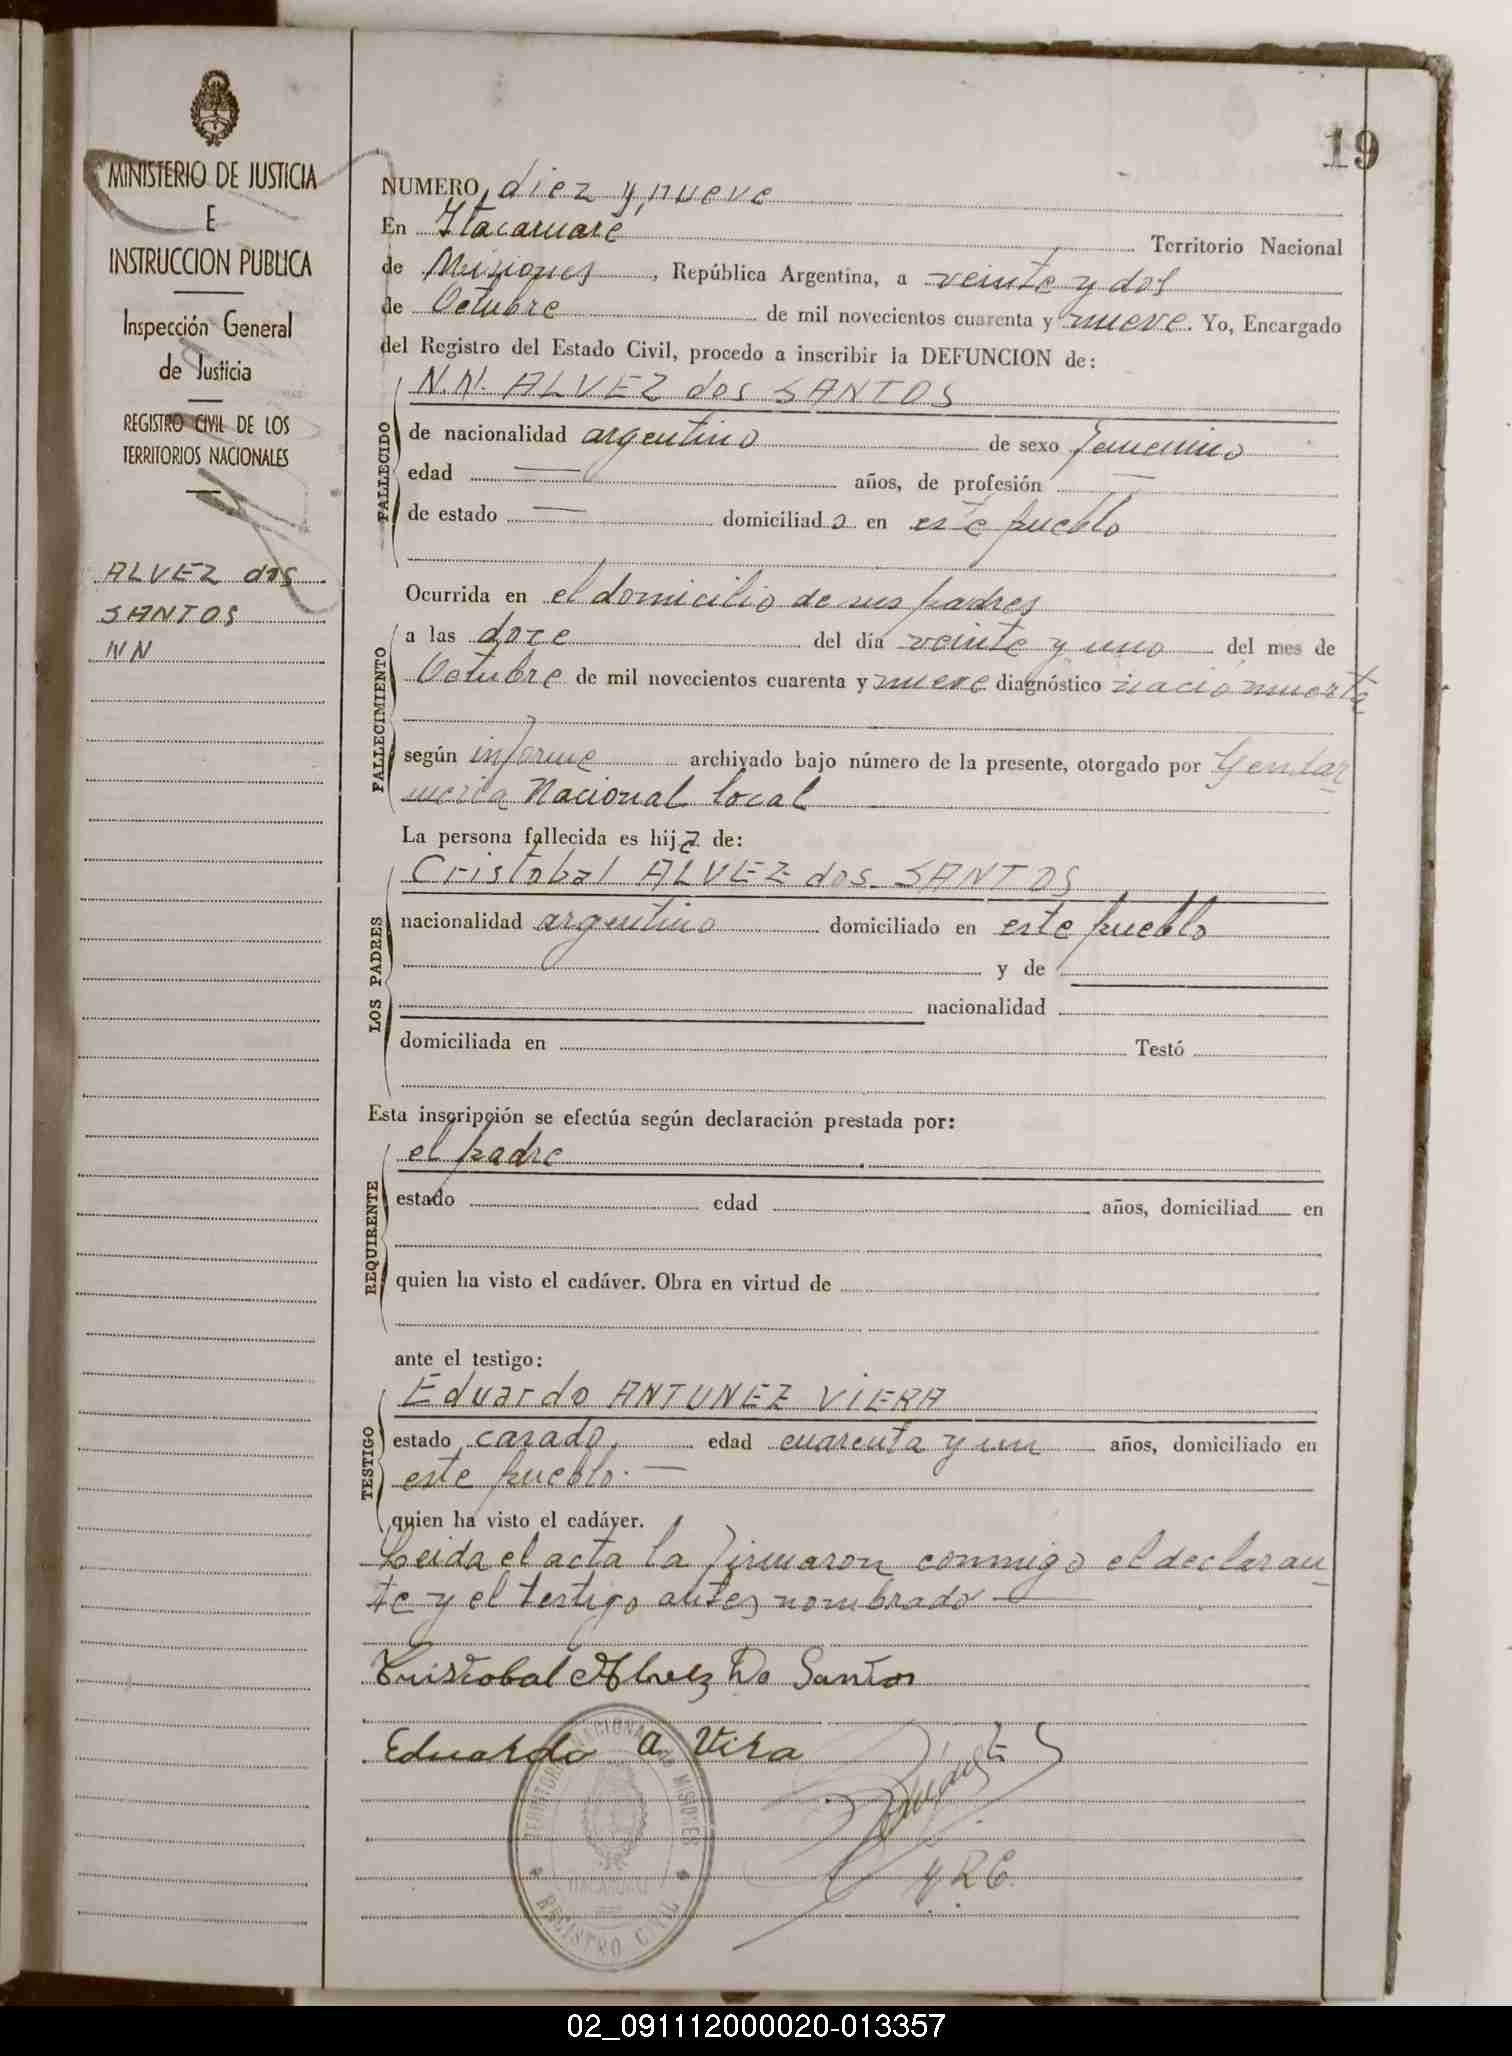 19
MINISTERIO DE JUSTICIA
E
INSTRUCCION PUBLICA
Inspección General
de Justicia
REGISTRO CIVIL DE LOS
TERRITORIOS NACIONALES
ALVEZ dos
SANTOS
NN
NUMERO diez y nueve
En Itacaruaré Territorio Nacional
de Misiones, República Argentina, a veinte y dos
de Octubre de mil novecientos cuarenta y nueve. Yo, Encargado
del Registro del Estado Civil, procedo a inscribir la DEFUNCION de:
N.N. ALVEZ dos SANTOS
FALLECIDO
de nacionalidad argentino de sexo femenino
edad — años, de profesión —
de estado — domiciliado en este pueblo
Ocurrida en el domicilio de sus padres
FALLECIMIENTO
a las doce del día veinte y uno del mes de
Octubre de mil novecientos cuarenta y nueve diagnóstico nació muerta
según informe archivado bajo número de la presente, otorgado por Gendar
meria Nacional local
La persona fallecida es hija de:
LOS PADRES
Cristobal ALVEZ dos SANTOS
nacionalidad argentino domiciliado en este pueblo
y de
nacionalidad
domiciliada en Testó
Esta inscripción se efectúa según declaración prestada por:
REQUIRENTE
el padre
estado edad años, domiciliad en
quien ha visto el cadáver. Obra en virtud de
ante el testigo:
TESTIGO
Eduardo ANTUNEZ VIERA
estado casado, edad cuarenta y un años, domiciliado en
este pueblo.—
quien ha visto el cadáver.
Leida el acta la firmaron conmigo el declaran-
te y el testigo antes nombrado —
Cristobal Alvez Do Santos
Eduardo A Vira
TERRITORIO NACIONAL DE MISIONES
ITACARUARE
REGISTRO CIVIL
02_091112000020-013357